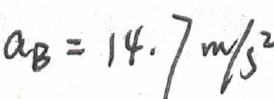 a_B = 14.7 m/s²